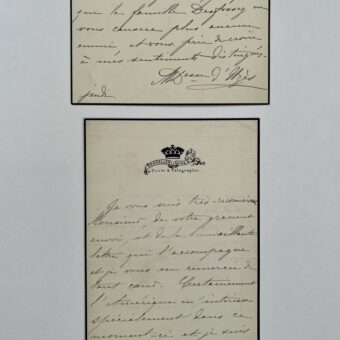 que la famille
vous causera plus aucun
ennui et vous prie de croire
à mes sentiments distingués
d'Uzès
BONNELLES
Poste & Télégraphe
Je vous suis très-reconnaissante
Monsieur de votre gracieux
envoi, et de la bienveillante
lettre qui l'accompagne
et je vous en remercie de
tout cœur. Certainement
l'Amérique m'intéresse
spécialement dans ce
moment-ci et je suis